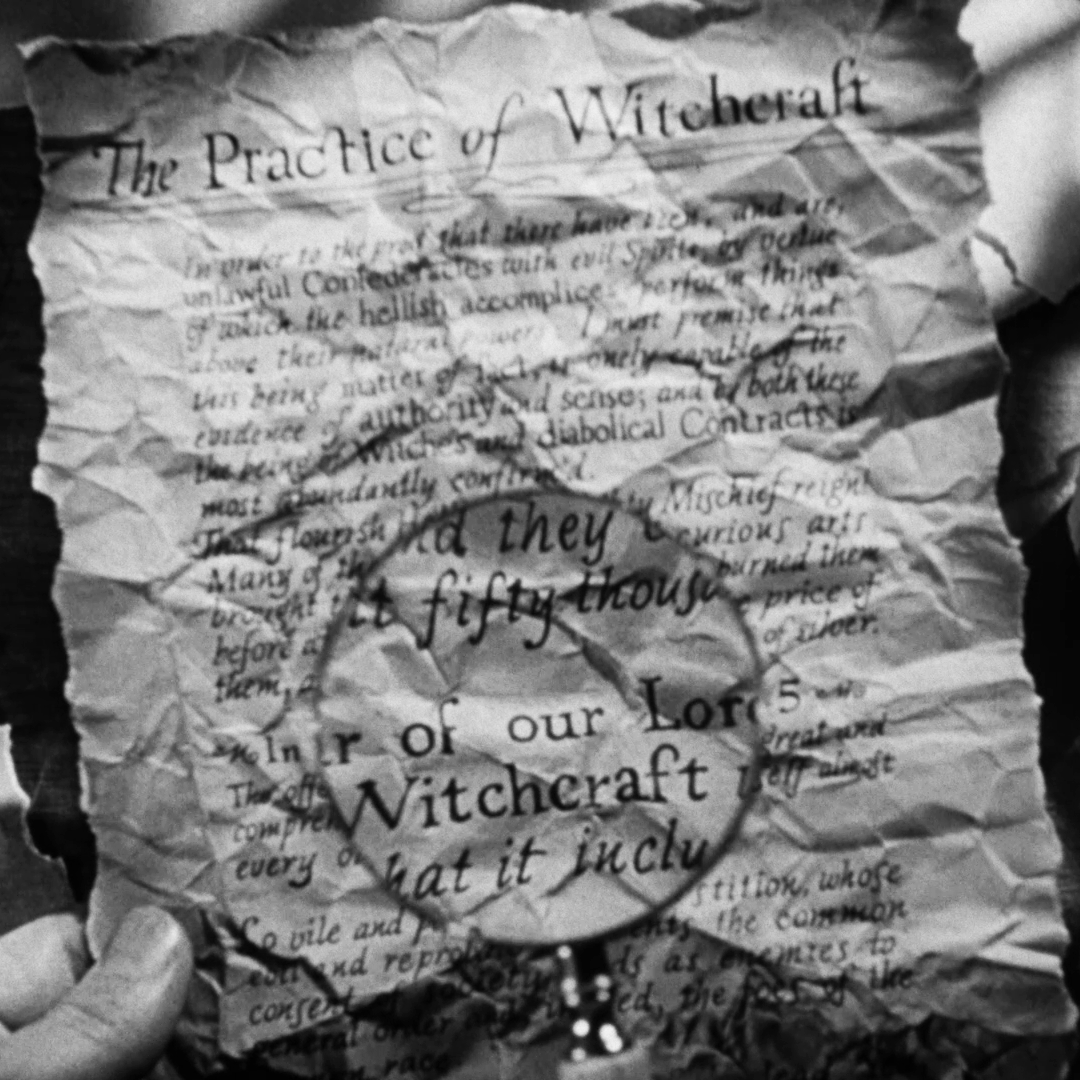 The Practice of Witchcraft
In order to the proof that there have been, and are,
unlawful Confederacies with evil Spirits, by vertue
of which the hellish accomplices perform things
above their natural powers. I must premise that
this being matter of fact, is onely capable of the
evidence of authority and sense; and by both these
the being of Witches and diabolical Contracts is
most abundantly confirm'd.
That flourish Mischief reign!
Many of th nd they curious arts
brought burned them
before a t fifty thous price of
them, of silver.
In r of our Lor 5
The off great and
compre Witchcraft itself almost
every o hat it inclu
So vile and stition, whose
evil and the common
consent of ds as enemies to
general order and ed, the foes of the
race